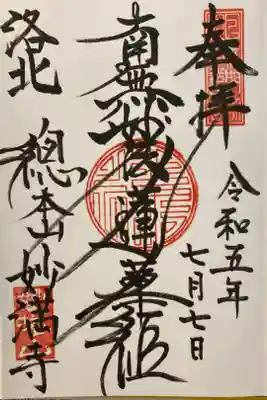 奉拝
令和五年
七月七日
南無妙法蓮華経
洛北
總本山妙満寺